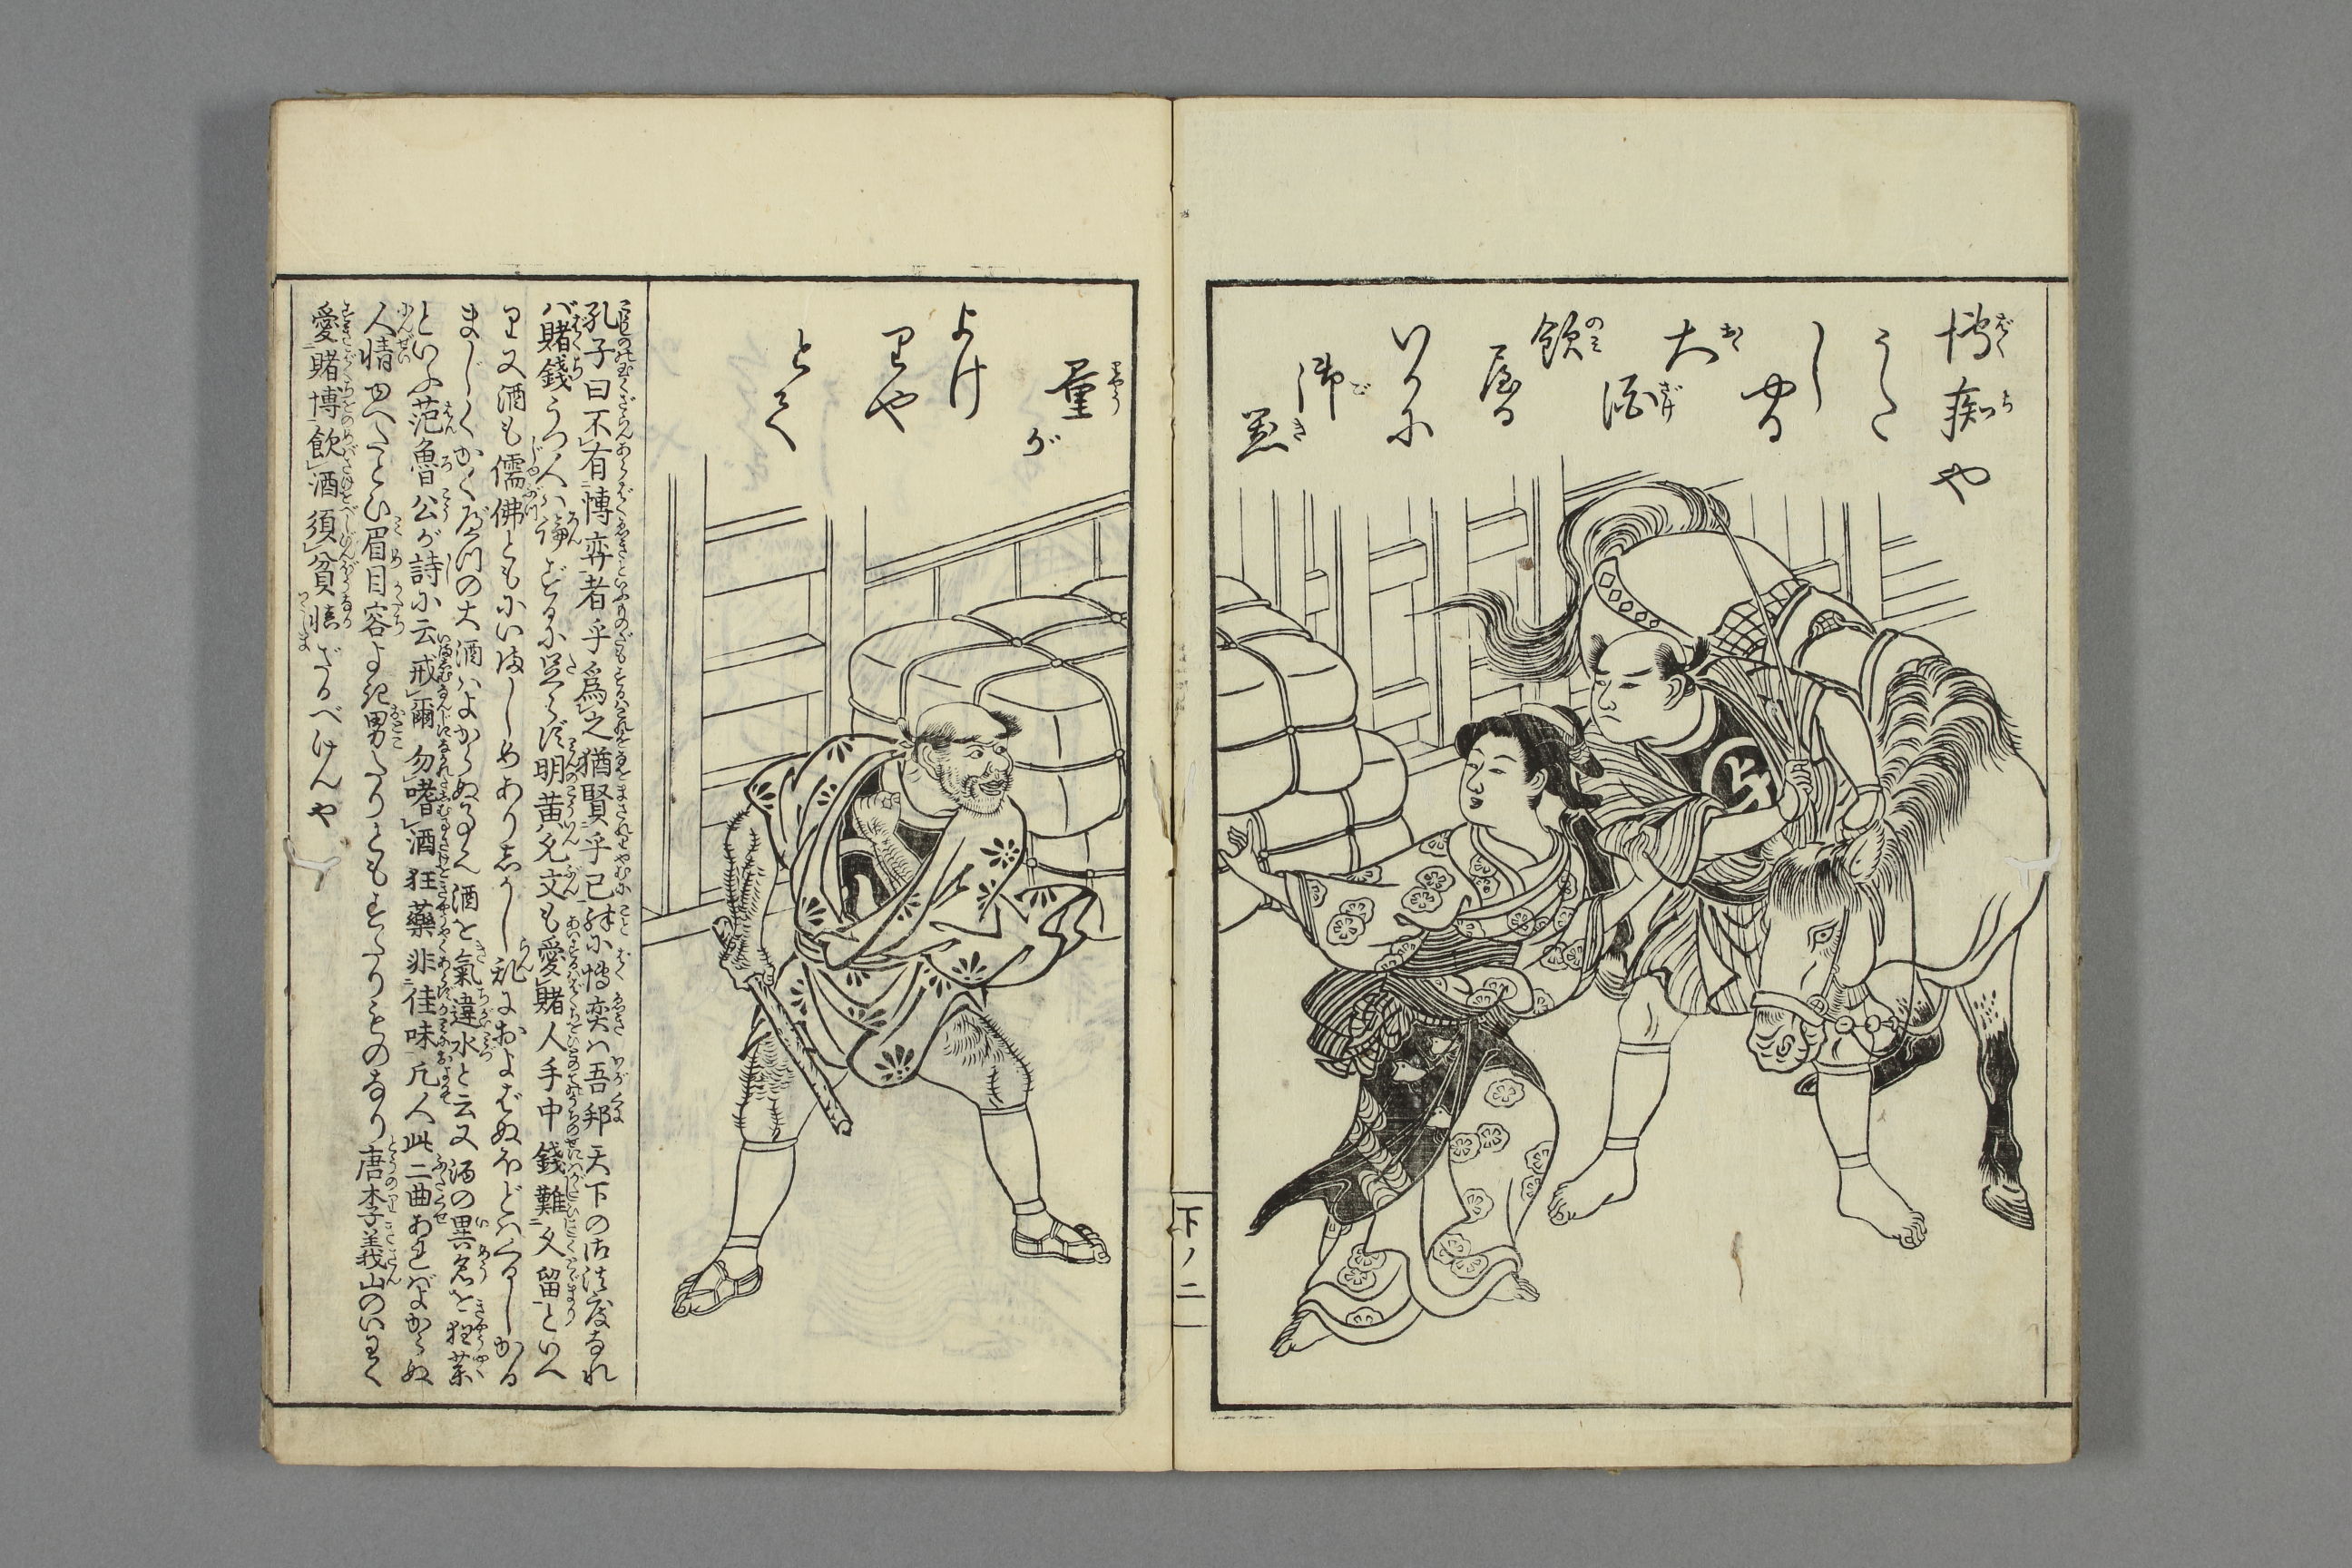 博痴や
うた
し
やる
大酒
飲
やる
いかに
御器
量が
よけ
りや
とて
孔子曰不有博弈者乎爲之猶賢乎已殊に博奕ハ吾邦天下の御法度なれ
バ賭錢うつ人ハ論ずるに足らず明黄允文も愛賭人手中錢難久留といへ
り又酒も儒佛ともにいましめありしかし乱におよばぬほどハくるしかる
まじくかくべつの大酒ハよからぬ事也酒を氣違水と云又酒の異名を狂薬
といふ范魯公が詩に云戒爾勿嗜酒狂藥非佳味凡人此二曲あれバよからぬ
人情ゆへたとひ眉目容よき男たりともすたりものなり唐李義山のいわく
愛賭博飲酒須貧愼ざるべけんや
下ノ二